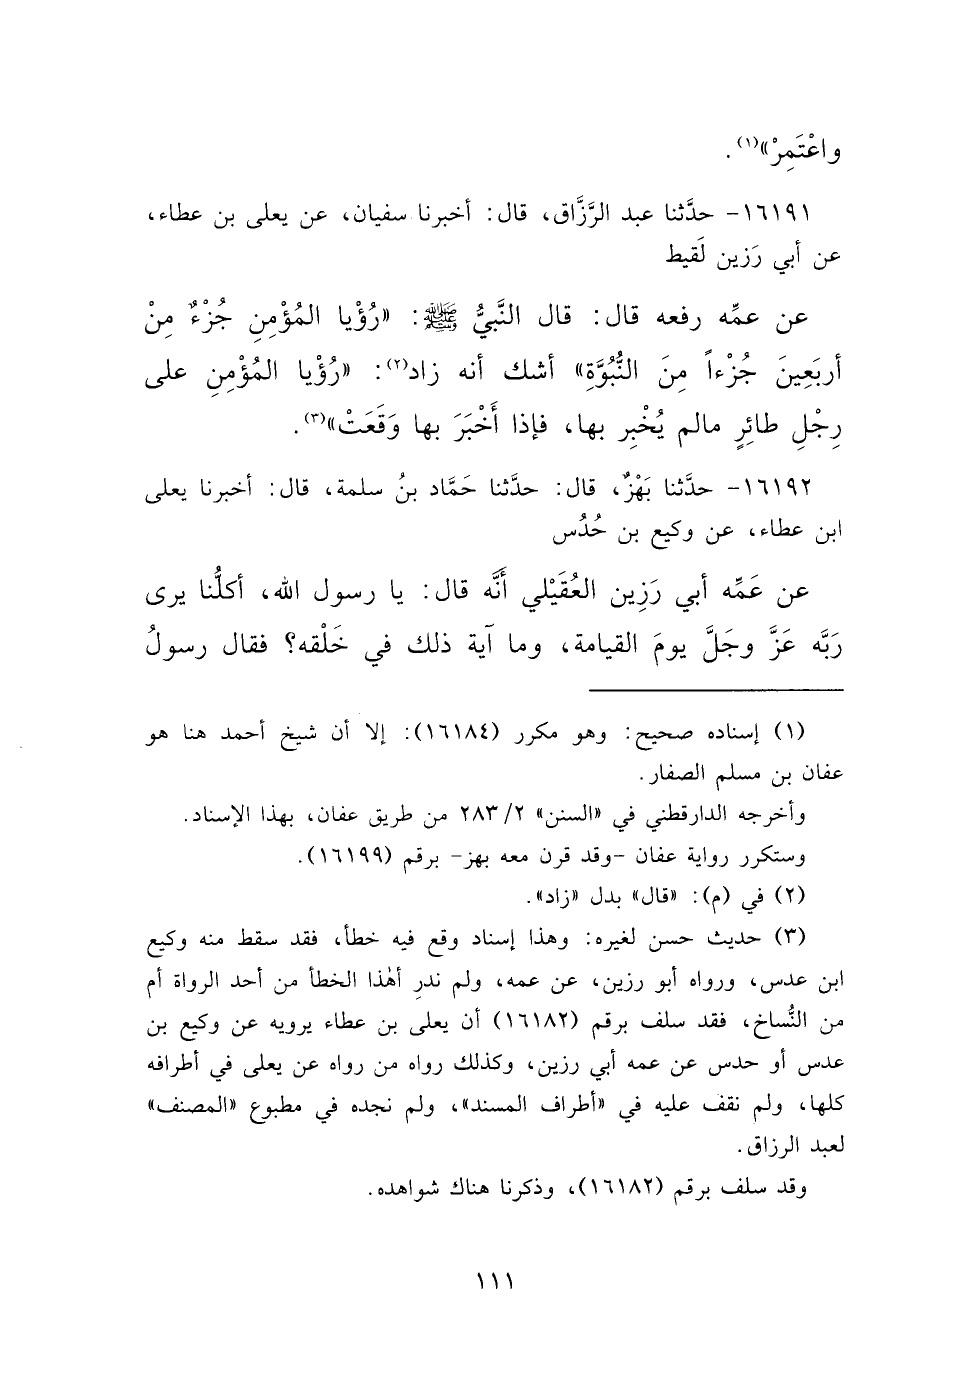 واعْتَمِرْ»(١).
١٦١٩١- حدَّثنا عبد الرَّزَّاق، قال: أخبرنا سفيان، عن يعلى بن عطاء،
عن أبي رَزين لَقيط
عن عمِّه رفعه قال: قال النَّبيُّ ﷺ: «رُؤْيا المُؤْمِنِ جُزْءٌ مِنْ
أربَعِينَ جُزْءاً مِنَ النُّبُوَّةِ» أشك أنه زاد(٢): «رُؤْيا المُؤْمِنِ على
رِجْلِ طائِرٍ مالم يُخْبِر بها، فإذا أَخْبَرَ بها وَقَعَتْ»(٣).
١٦١٩٢- حدَّثنا بَهْزٌ، قال: حدَّثنا حَمَّاد بنُ سلمة، قال: أخبرنا يعلى
ابن عطاء، عن وكيع بن حُدُس
عن عَمِّه أبي رَزِين العُقَيْلي أَنَّه قال: يا رسول الله، أكلُّنا يرى
رَبَّه عَزَّ وجَلَّ يومَ القيامة، وما آية ذلك في خَلْقه؟ فقال رسولُ
(١) إسناده صحيح: وهو مكرر (١٦١٨٤): إلا أن شيخ أحمد هنا هو
عفان بن مسلم الصفار.
وأخرجه الدارقطني في «السنن» ٢٨٣/٢ من طريق عفان، بهذا الإسناد.
وستكرر رواية عفان -وقد قرن معه بهز- برقم (١٦١٩٩).
(٢) في (م): «قال» بدل «زاد».
(٣) حديث حسن لغيره: وهذا إسناد وقع فيه خطأ، فقد سقط منه وكيع
ابن عدس، ورواه أبو رزين، عن عمه، ولم ندرِ أهٰذا الخطأ من أحد الرواة أم
من النُّساخ، فقد سلف برقم (١٦١٨٢) أن يعلى بن عطاء يرويه عن وكيع بن
عدس أو حدس عن عمه أبي رزين، وكذلك رواه من رواه عن يعلى في أطرافه
كلها، ولم نقف عليه في «أطراف المسند»، ولم نجده في مطبوع «المصنف»
لعبد الرزاق.
وقد سلف برقم (١٦١٨٢)، وذكرنا هناك شواهده.
١١١